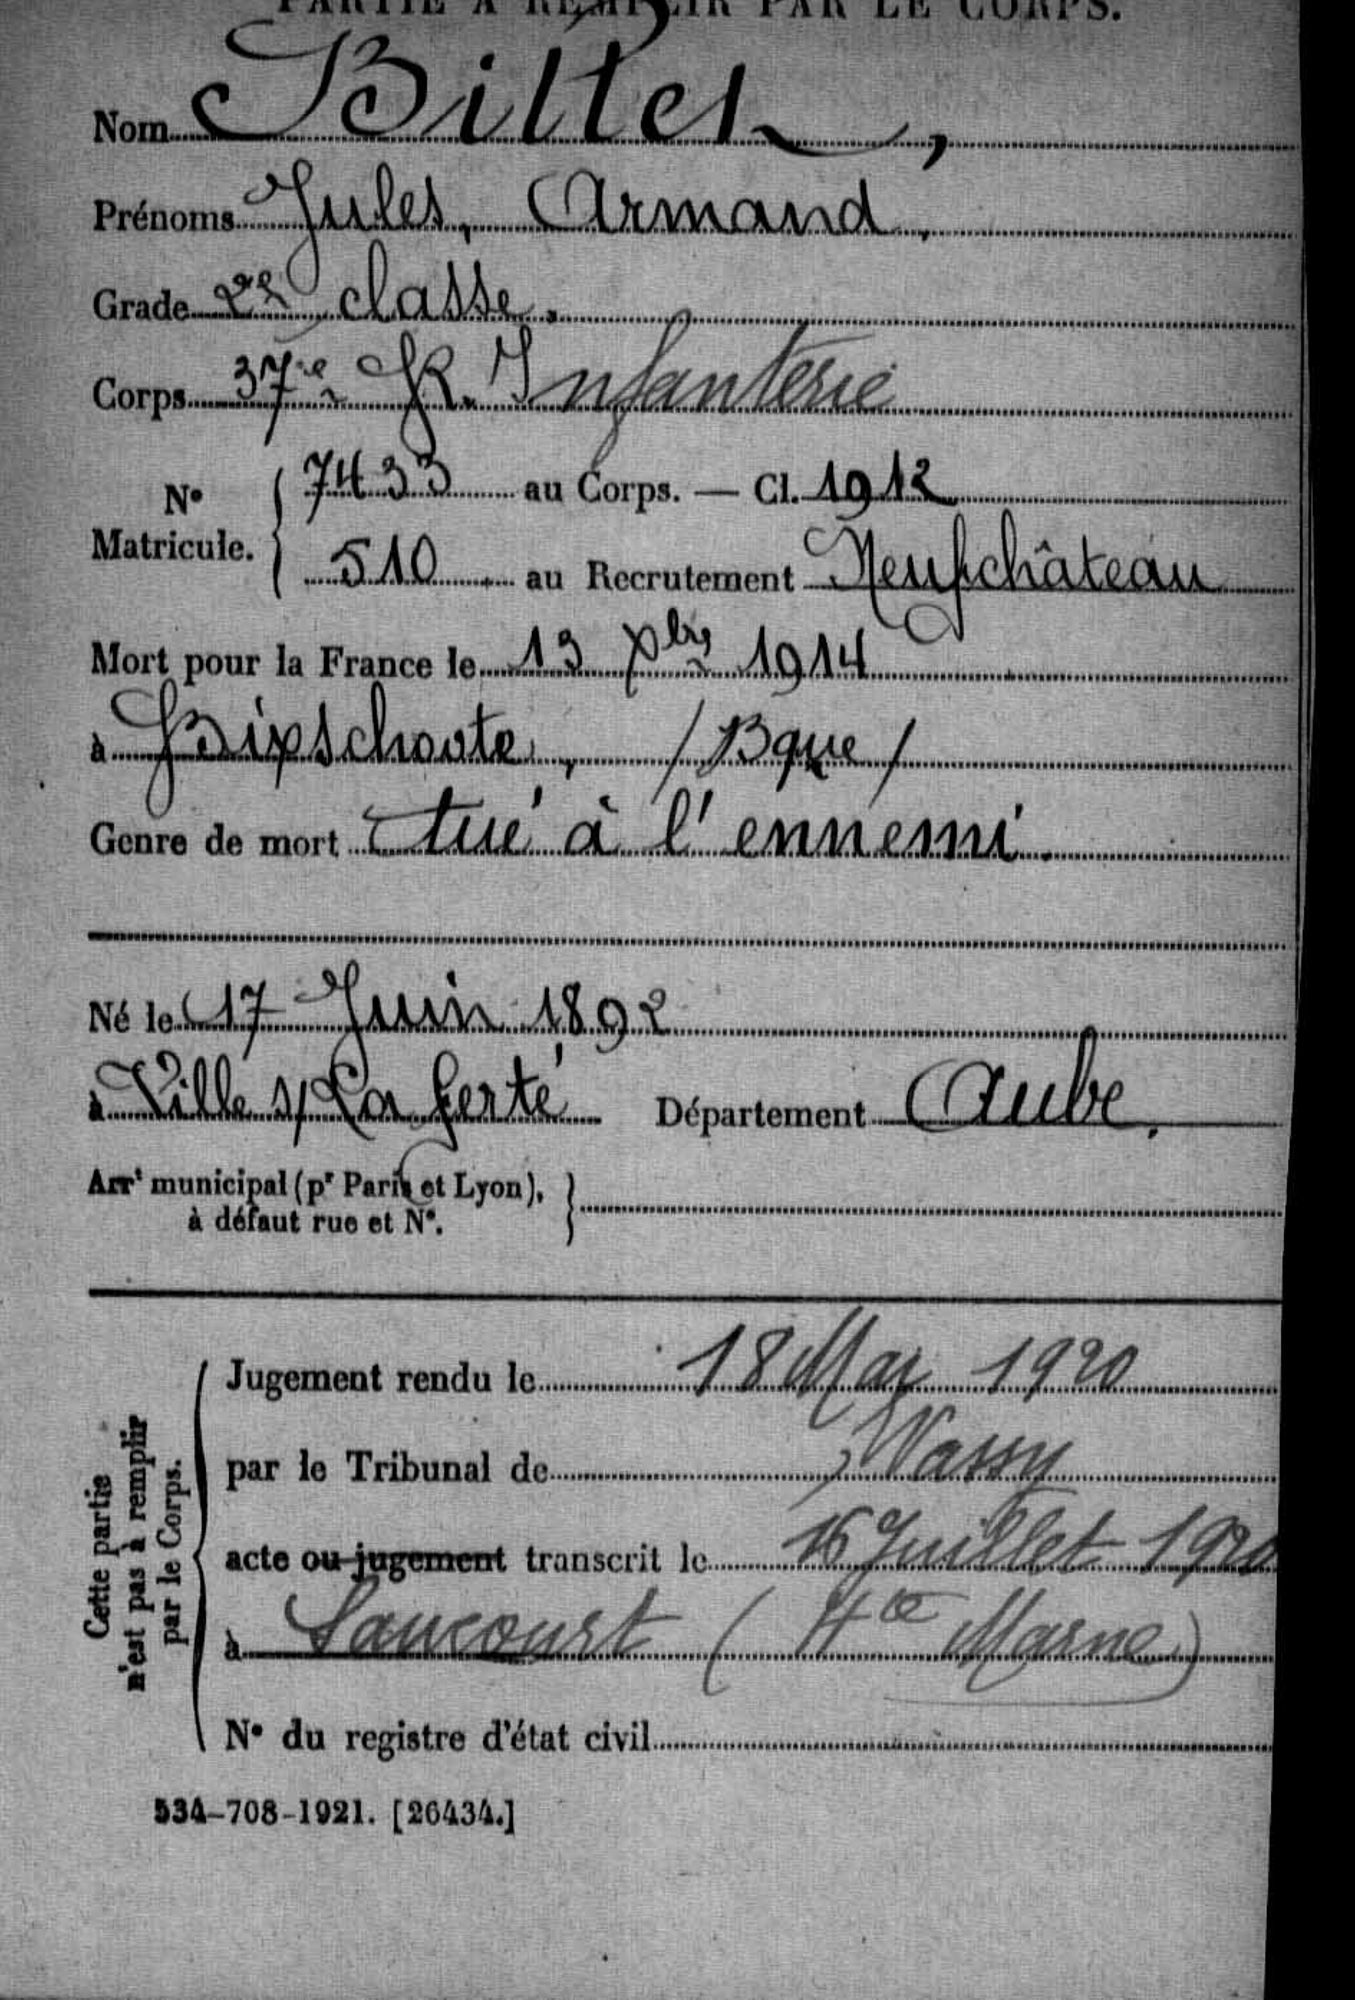 PARTIE A REMPLIR PAR LE CORPS.
Nom Billet,
Prénoms Jules, Armand.
Grade 2e classe.
Corps 37ie R. Infanterie
No Matricule. { 7433 au Corps. — Cl. 1912
510 au Recrutement Neufchâteau
Mort pour la France le 13 Xbre 1914
à Bixschoote, /Bque/
Genre de mort tué à l'ennemi.
Né le 17 Juin 1892
à Ville s/ La ferté Département Aube.
Arrt municipal (pr Paris et Lyon), }
à défaut rue et No.
Cette partie
n'est pas à remplir
par le Corps.
Jugement rendu le 18 Mai 1920
par le Tribunal de Wassy
acte ou jugement transcrit le 16 Juillet 1920
à Saucourt (Hte Marne)
No du registre d'état civil
534-708-1921. [26434.]